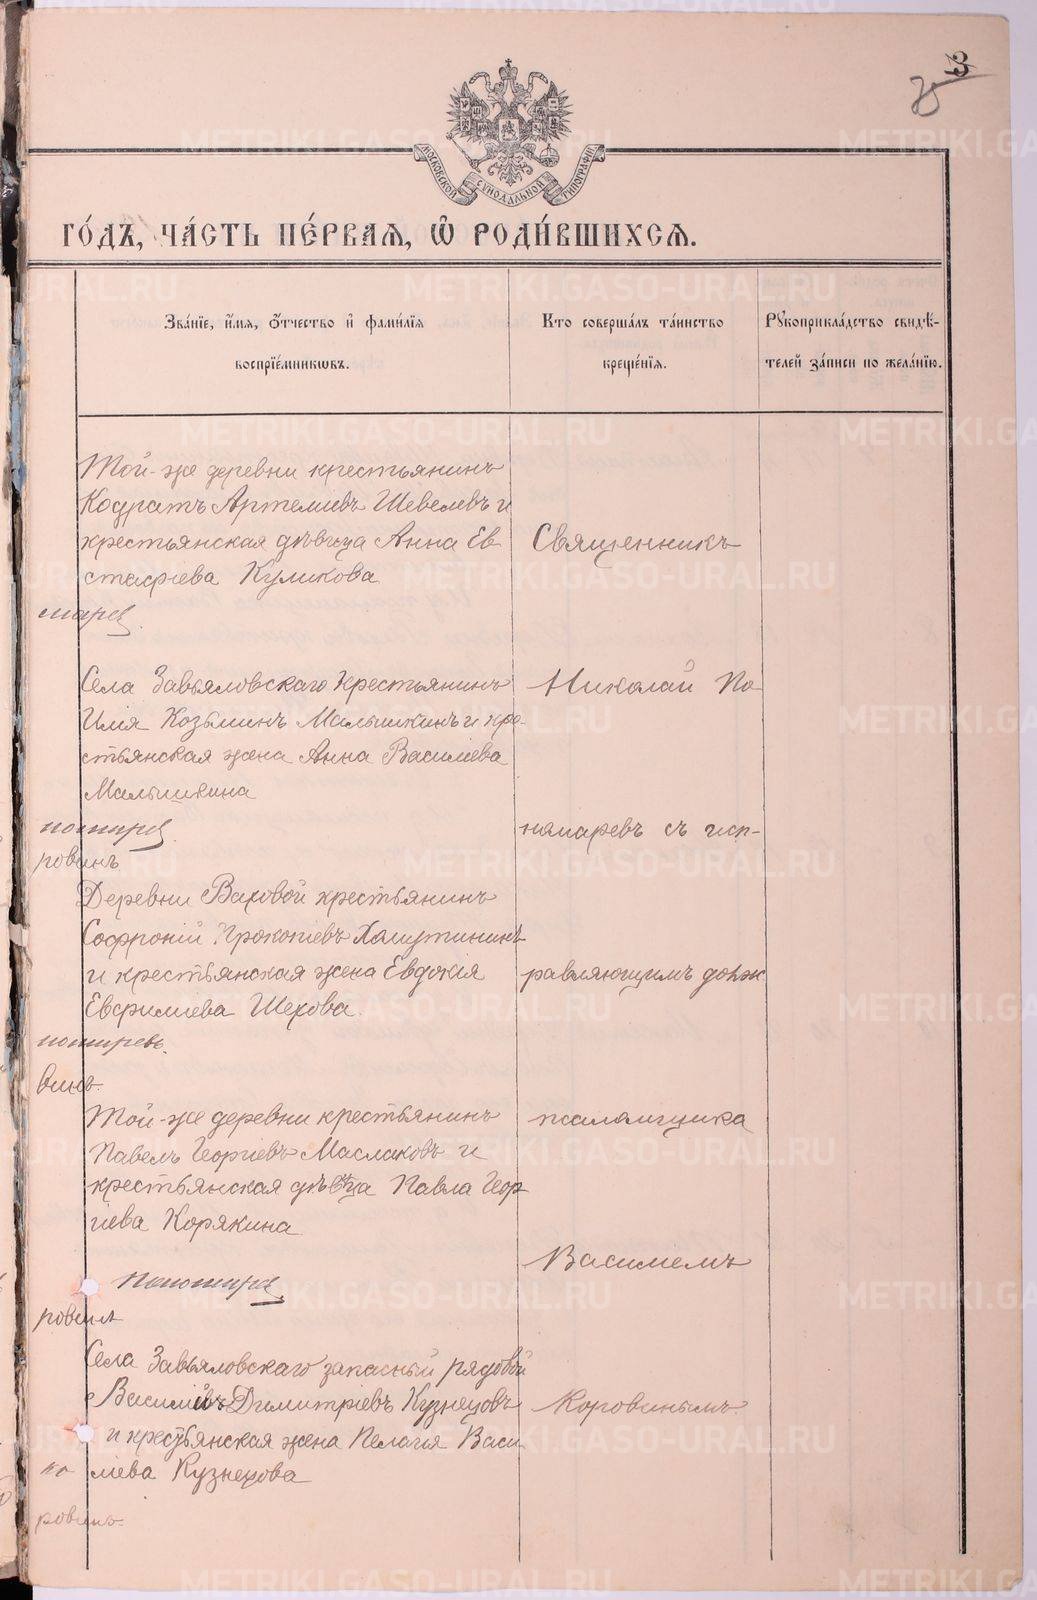 3
МОСКОВСКОЙ СѴНОДАЛЬНОЙ ТИПОГРАФІИ
ГО́ДЪ, ЧА́СТЬ ПЕ́РВАЯ, Ѡ҆ РОДИ́ВШИХСЯ.
Зва́нїе, и҆́мя, ѻ҆́тчество и҆ фами́лїя
воспрїе́мникѡвъ.
Кто соверша́лъ та́инство
креще́нїя.
Рꙋкоприкла́дство свидѣ́-
телей за́писи по жела́нїю.
Той-же деревни крестьянинъ
Кодратъ Артемиевъ Шевелевъ и
крестьянская дѣвица Анна Ев
стафiева Куликова
Священникъ
Села Завьяловскаго крестьянинъ
Илiя Козьминъ Малышкинъ и кре-
стьянская жена Анна Василiева
Малышкина
Николай По
номаревъ съ исп-
ровинъ
Деревни Ваховой крестьянинъ
Софронiй Прокопiевъ Хамутининъ
и крестьянская жена Евдокiя
Евфимiева Шехова.
равляющимъ долж
винъ
Той-же деревни крестьянинъ
Павелъ Георгiевъ Маслаковъ и
крестьянская дѣвица Павла Геор
гiева Корякина
псаломщика
Василiемъ
ровинъ
Села Завьяловскаго запасный рядовой
Василiй Димитрiевъ Кузнецовъ
и крестьянская жена Пелагiя Васи
ко лiева Кузнецова
Коровинымъ.
ровинъ.
METRIKI.GASO-URAL.RU